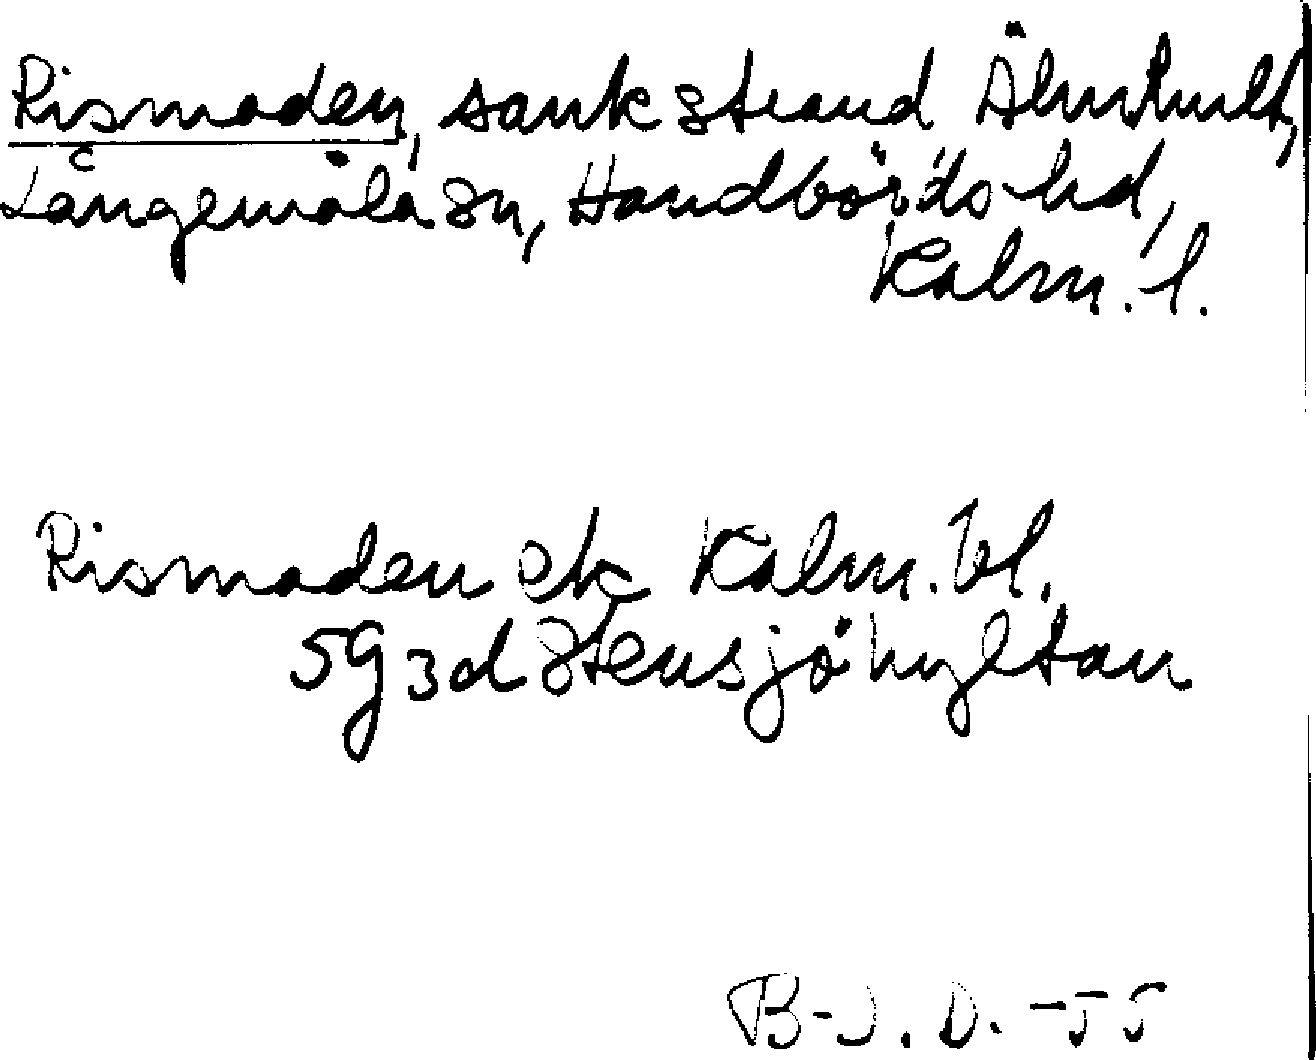 Rismaden, sank strand Älmhult,
Långemåla sn, Handbörds hd,
Kalm. l.
Rismaden ek Kalm. bl.
5G3d Stensjöhyltan
B-J. D. -55